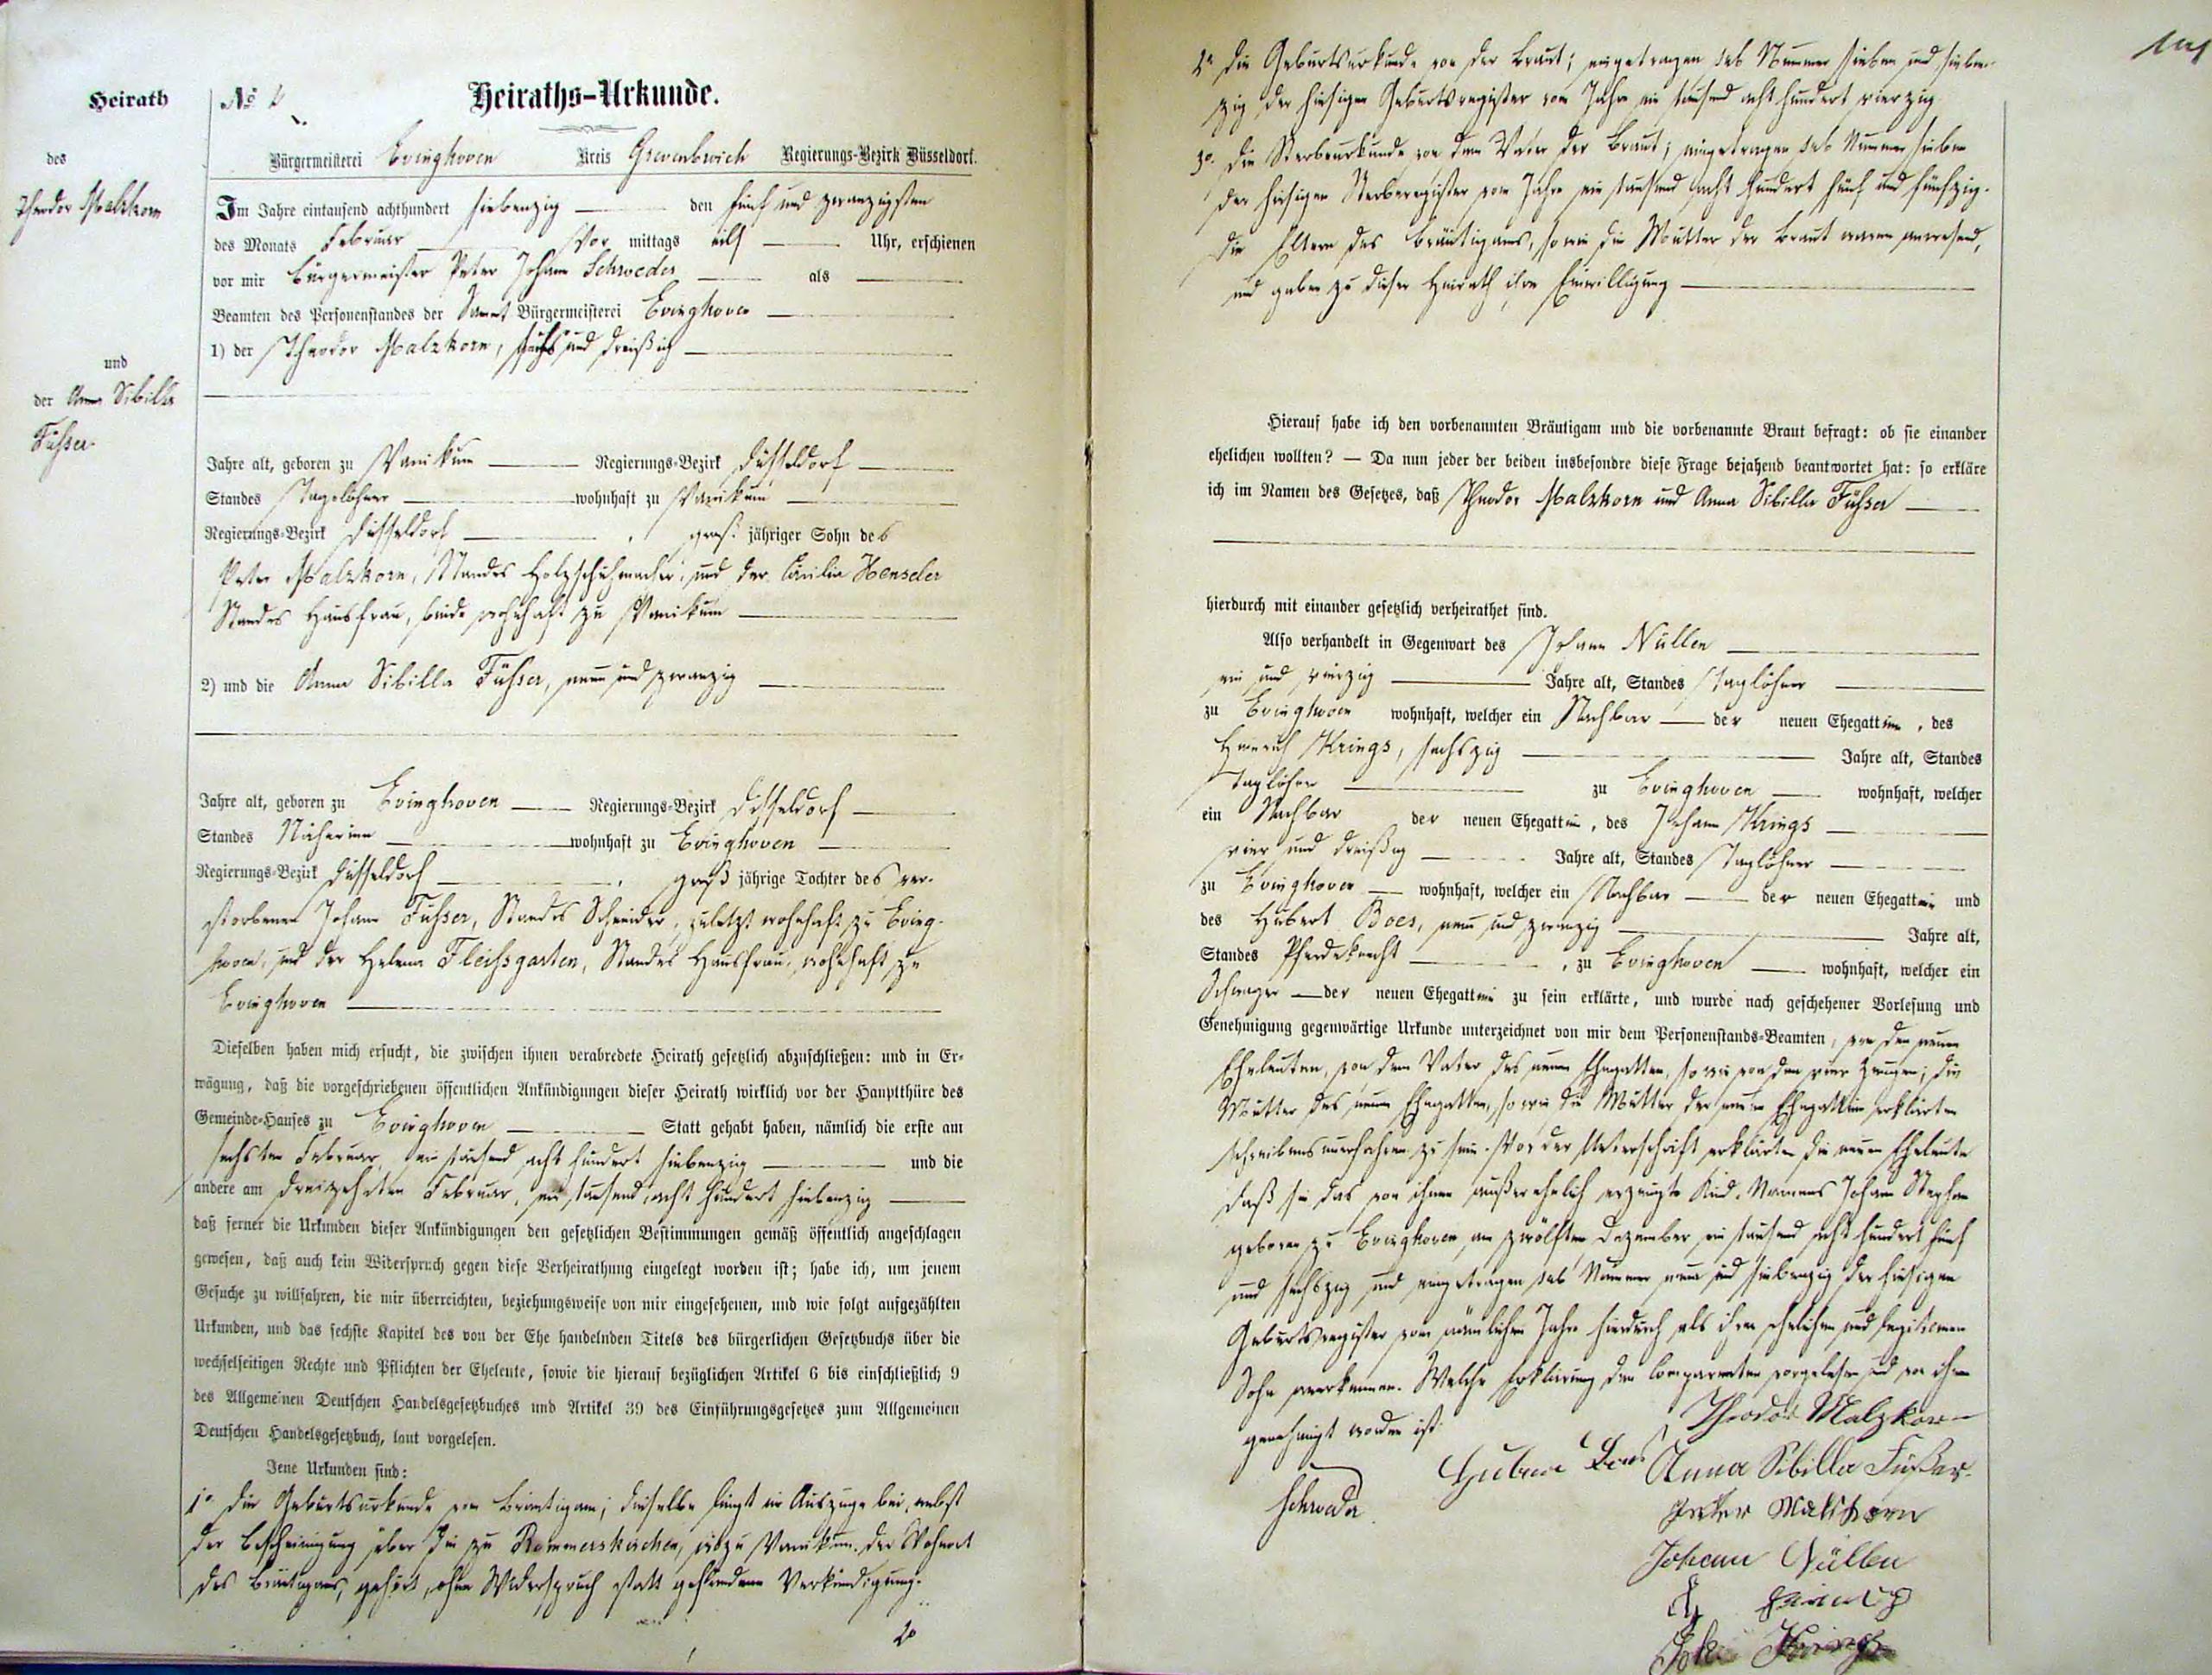 Heirath
des
Theodor Malzkorn
und
der Anna Sibilla
Füsser
No 4
Heiraths-Urkunde.
Bürgermeisterei Evinghoven Kreis Grevenbroich Regierungs-Bezirk Düsseldorf.
Im Jahre eintausend achthundert siebenzig den fünf und zwanzigsten
des Monats Februar Vor mittags eilf Uhr, erschienen
vor mir Bürgermeister Peter Johann Schroeder als
Beamten des Personenstandes der Samt Bürgermeisterei Evinghoven
1) der Theodor Malzkorn, sechs und dreißig
Jahre alt, geboren zu Vanikum Regierungs-Bezirk Düsseldorf
Standes Tagelöhner wohnhaft zu Vanikum
Regierungs-Bezirk Düsseldorf, groß jähriger Sohn des
Peter Malzkorn, Standes Holzschuhmacher, und der Cäcilia Henseler
Standes Hausfrau, beide wohnhaft zu Vanikum
2) und die Anna Sibilla Füsser, neun und zwanzig
Jahre alt, geboren zu Evinghoven Regierungs-Bezirk Düsseldorf
Standes Näherinn wohnhaft zu Evinghoven
Regierungs-Bezirk Düsseldorf, groß jährige Tochter des ver-
storbenen Johann Füsser, Standes Schneider, zuletzt wohnhaft zu Eving-
hoven, und der Helena Fleissgarten, Standes Hausfrau, wohnhaft zu
Evinghoven
Dieselben haben mich ersucht, die zwischen ihnen verabredete Heirath gesetzlich abzuschließen: und in Er-
wägung, daß die vorgeschriebenen öffentlichen Ankündigungen dieser Heirath wirklich vor der Hauptthüre des
Gemeinde-Hauses zu Evinghoven Statt gehabt haben, nämlich die erste am
sechsten Februar ein tausend acht hundert siebenzig und die
andere am dreizehnten Februar, ein tausend acht hundert siebenzig
daß ferner die Urkunden dieser Ankündigungen den gesetzlichen Bestimmungen gemäß öffentlich angeschlagen
gewesen, daß auch kein Widerspruch gegen diese Verheirathung eingelegt worden ist; habe ich, um jenem
Gesuche zu willfahren, die mir überreichten, beziehungsweise von mir eingesehenen, und wie folgt aufgezählten
Urkunden, und das sechste Kapitel des von der Ehe handelnden Titels des bürgerlichen Gesetzbuchs über die
wechselseitigen Rechte und Pflichten der Eheleute, sowie die hierauf bezüglichen Artikel 6 bis einschließlich 9
des Allgemeinen Deutschen Handelsgesetzbuches und Artikel 39 des Einführungsgesetzes zum Allgemeinen
Deutschen Handelsgesetzbuch, laut vorgelesen.
Jene Urkunden sind:
1o die Geburtsurkunde vom Bräutigam; dieselbe liegt im Auszuge bei, nebst
der Bescheinigung über die zu Rommerskirchen, wozu Vanikum der Wohnort
des Bräutigams, gehört, ohne Widerspruch statt gefundene Verkündigung.
2o
2o die Geburtsurkunde von der Braut; eingetragen sub Nummer sieben und sieben-
zig der hiesigen Geburtsregister vom Jahre ein tausend acht hundert vierzig.
3o die Sterbeurkunde von dem Vater der Braut; eingetragen sub Nummer sieben
der hiesigen Sterberegister vom Jahre ein tausend acht hundert fünf und fünfzig.
Die Eltern des Bräutigams, so wie die Mutter der Braut waren anwesend,
und gaben zu dieser Heirath ihre Einwilligung
Hierauf habe ich den vorbenannten Bräutigam und die vorbenannte Braut befragt: ob sie einander
ehelichen wollten? — Da nun jeder der beiden insbesondre diese Frage bejahend beantwortet hat: so erkläre
ich im Namen des Gesetzes, daß Theodor Malzkorn und Anna Sibilla Füsser
hierdurch mit einander gesetzlich verheirathet sind.
Also verhandelt in Gegenwart des Johann Nüllen
ein und vierzig Jahre alt, Standes Taglöhner
zu Evinghoven wohnhaft, welcher ein Nachbar der neuen Ehegattinn, des
Heinrich Krings, sechszig Jahre alt, Standes
Taglöhner zu Evinghoven wohnhaft, welcher
ein Nachbar der neuen Ehegattin, des Johann Krings
vier und dreißig Jahre alt, Standes Taglöhner
zu Evinghoven wohnhaft, welcher ein Nachbar der neuen Ehegattin und
des Hubert Boes, neun und zwanzig Jahre alt,
Standes Pferdeknecht, zu Evinghoven wohnhaft, welcher ein
Schwager der neuen Ehegattin zu sein erklärte, und wurde nach geschehener Vorlesung und
Genehmigung gegenwärtige Urkunde unterzeichnet von mir dem Personenstands-Beamten, von den neuen
Eheleuten, von dem Vater des neuen Ehegatten, so wie von den vier Zeugen; die
Mutter des neuen Ehegatten, so wie die Mutter der neuen Ehegattin erklärten
schreibensunerfahren zu sein. Vor der Unterschrift erklärten die neuen Eheleute
daß sie das von ihnen außerehelich erzeugte Kind, Namens Johann Stephan
geboren zu Evinghoven, am zwölften Dezember, ein tausend acht hundert fünf
und sechszig und eingetragen sub Nummer neun und siebenzig der hiesigen
Geburtsregister vom nämlichen Jahre hierdurch als ihren ehelichen und legitimen
Sohn anerkennen. Welche Erklärung den Comparenten vorgelesen und von ihnen
genehmigt worden ist.
Theodor Malzkorn
Hubert Boes Anna Sibilla Füßer
Schroeder
Peter Malzkorn
Johann Nüllen
Joh Krings